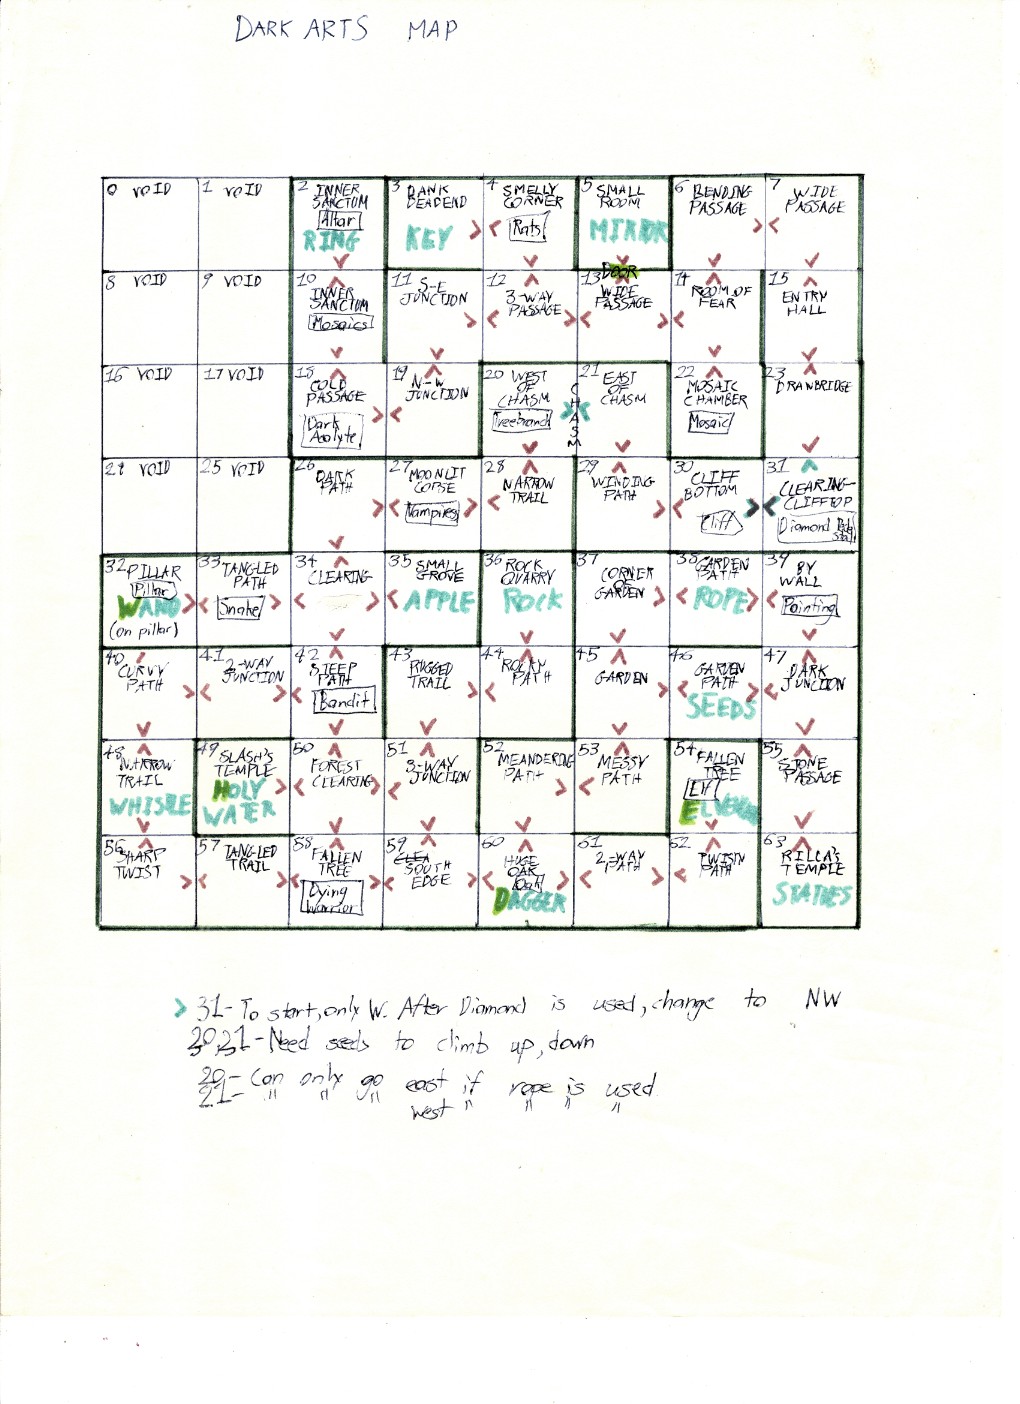 DARK ARTS MAP
0 VOID
1 VOID
2 INNER
SANCTUM
Altar
RING
3 DANK
DEADEND
KEY
4 SMELLY
CORNER
Rats
5 SMALL
ROOM
MIRROR
DOOR
6 BENDING
PASSAGE
7 WIDE
PASSAGE
8 VOID
9 VOID
10 INNER
SANCTUM
Mosaics
11 S-E
JUNCTION
12 3-WAY
PASSAGE
13 WIDE
PASSAGE
14 ROOM OF
FEAR
15 ENTRY
HALL
16 VOID
17 VOID
18 COLD
PASSAGE
Dark
Acolyte
19 N-W
JUNCTION
20 WEST
OF
CHASM
Treebranch
CHASM
21 EAST
OF
CHASM
22 MOSAIC
CHAMBER
Mosaic
23 DRAWBRIDGE
24 VOID
25 VOID
26 DARK
PATH
27 MOONLIT
COPSE
Vampires
28 NARROW
TRAIL
29 WINDING
PATH
30 CLIFF
BOTTOM
Cliff
31 CLEARING-
CLIFFTOP
Diamond
32 PILLAR
Pillar
WAND
(on pillar)
33 TANGLED
PATH
Snake
34 CLEARING
35 SMALL
GROVE
APPLE
36 ROCK
QUARRY
ROCK
37 CORNER
OF
GARDEN
38 GARDEN
PATH
ROPE
39 BY
WALL
Painting
40 CURVY
PATH
41 2-WAY
JUNCTION
42 STEEP
PATH
Bandit
43 RUGGED
TRAIL
44 ROCKY
PATH
45 GARDEN
46 GARDEN
PATH
SEEDS
47 DARK
JUNCTION
48 NARROW
TRAIL
WHISTLE
49 SLASH'S
TEMPLE
HOLY
WATER
50 FOREST
CLEARING
51 3-WAY
JUNCTION
52 MEANDERING
PATH
53 MESSY
PATH
54 FALLEN
TREE
Elf
55 STONE
PASSAGE
56 SHARP
TWIST
57 TANGLED
TRAIL
58 FALLEN
TREE
Dying
Warrior
59 CLEA
SOUTH
EDGE
60 HUGE
OAK
Oak
DAGGER
61 2-WAY
PATH
62 TWISTY
PATH
63 RILCA'S
TEMPLE
STATUES
31- To start, only W. After Diamond is used, change to NW
20,21- Need seeds to climb up, down
20- Can only go east if rope is used
21- " " " west " " " "